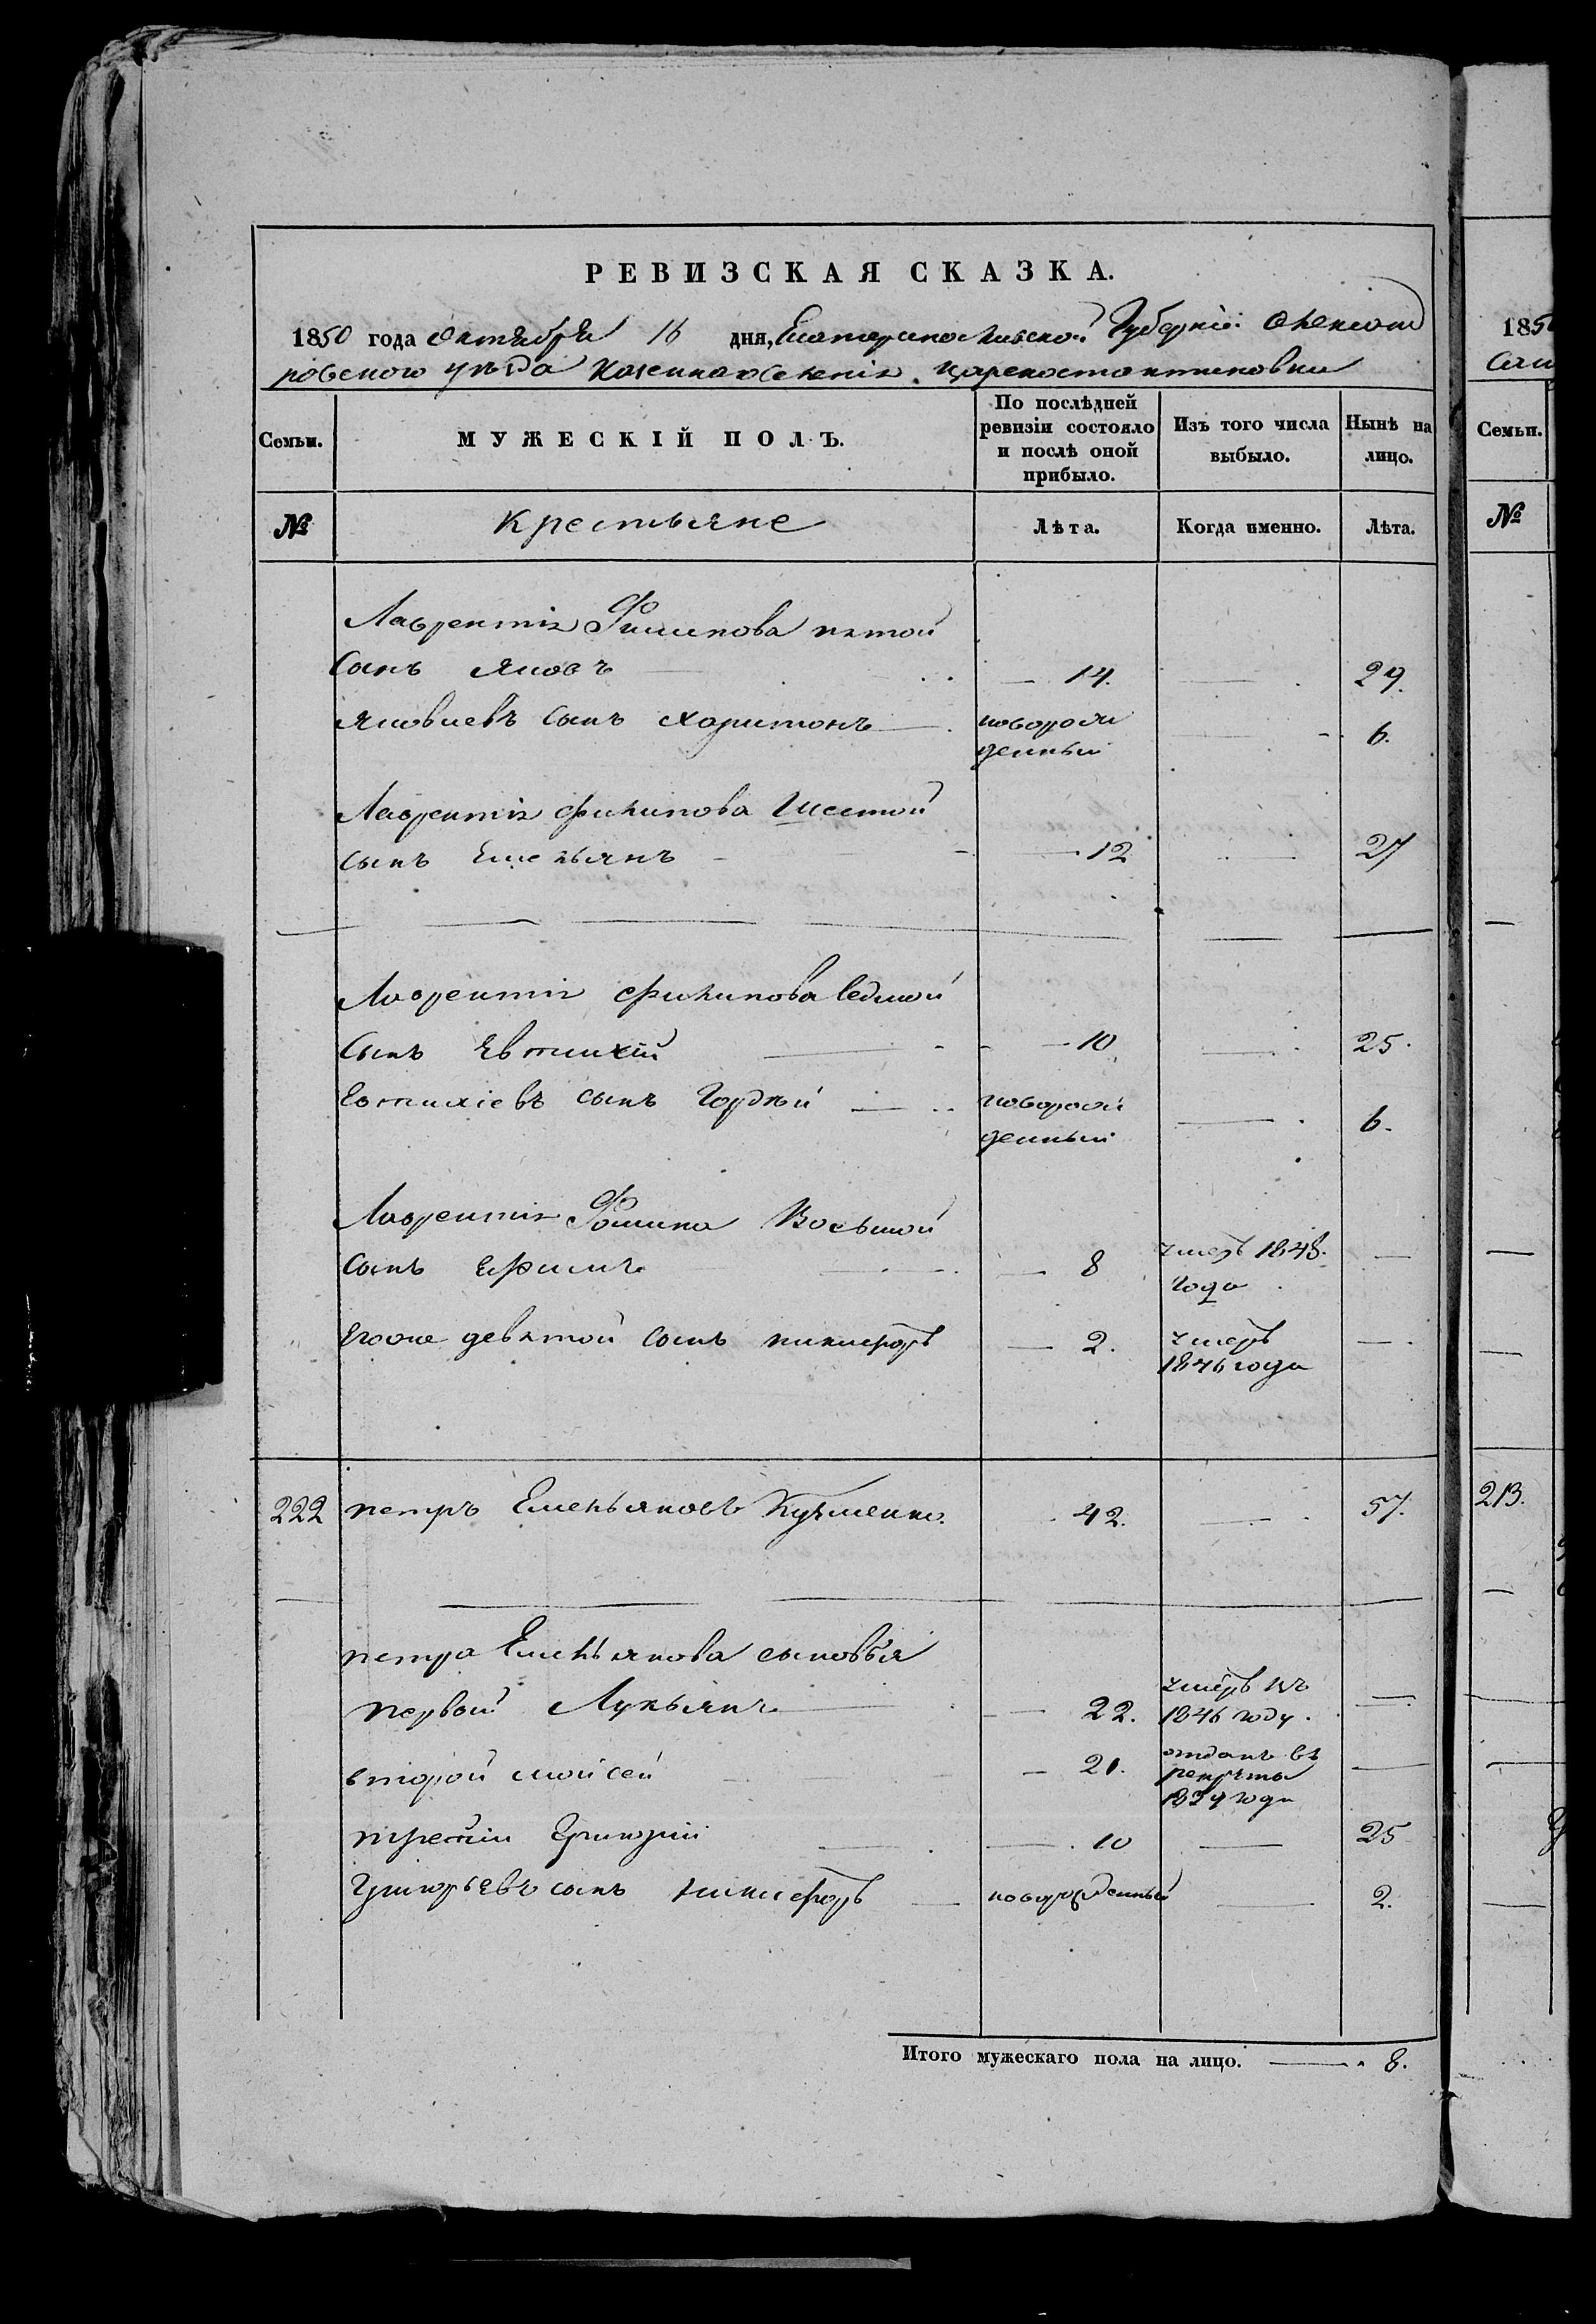 РЕВИЗСКАЯ СКАЗКА.
1850 года Октября 16 дня, Екатеринославской Губерніи Александ
ровского уѣзда казенного Селенія Цареконстантиновки
Семьи.
МУЖЕСКІЙ ПОЛЪ.
По послѣдней ревизіи состояло и послѣ оной прибыло.
Изъ того числа выбыло.
Нынѣ на лицо.
№ Крестьяне Лѣта. Когда именно. Лѣта.
Лаврентія Филипова пятой
Сынъ Яковъ 14. 29.
Яковлевъ сынъ Харитонъ новорож 6.
денный
Лаврентія Филипова Шестой
сынъ Емельянъ 12 27
Лаврентія Филипова седмой
Сынъ Евтихій 10 25.
Евтихіевъ сынъ Гордѣй новорож 6.
денный
Лаврентія Восьмой
Сынъ Ефимъ 8 умеръ 1848
года
Егоже девятой сынъ никифоръ 2. умеръ
1846 года
222 петръ Емельяновъ Кучменко. 42. 57.
петра Емельянова сыновья
первой Лукьянъ 22. умеръ въ
1846 году.
второй моисей 21. отданъ въ
рекруты
1839 года
третій Григорій 10 25
Григорьевъ сынъ никифоръ новорожденный 2.
Итого мужескаго пола на лицо. 8.
185
Семьи.
№
213.